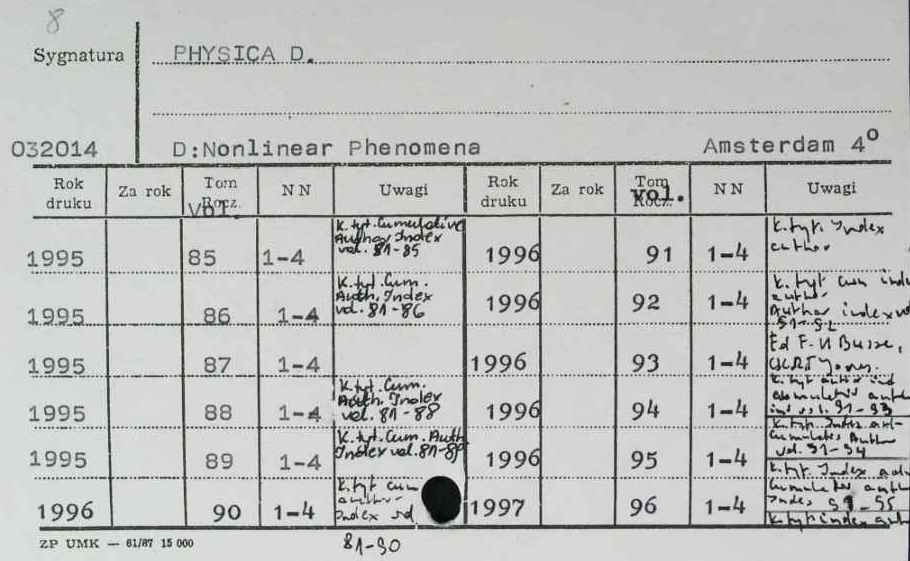 8
Sygnatura PHYSICA D.
032014 D:Nonlinear Phenomena Amsterdam 4°
Rok druku Za rok Tom Rocz. vol. NN Uwagi Rok druku Za rok Tom Rocz. vol. NN Uwagi
1995 85 1-4 K. tyt. Cumulative Author Index vol. 81-85 1996 91 1-4 K. tyt. Index author
1995 86 1-4 K. tyt. Cum. Auth. Index vol. 81-86 1996 92 1-4 K. tyt cum Author index
1995 87 1-4 1996 93 1-4 Ed F. H Busse,
1995 88 1-4 K. tyt. Cum. Auth. Index vol. 81-88 1996 94 1-4 vol. 91-93
1995 89 1-4 K. tyt. Cum. Auth Index vol. 81-89 1996 95 1-4 K. tyt. Index Author vol. 91-94
1996 90 1-4 K. tyt cum author Index vol 81-90 1997 96 1-4 K. tyt. Index Index 91-95
K. tyt index
ZP UMK — 61/87 15 000